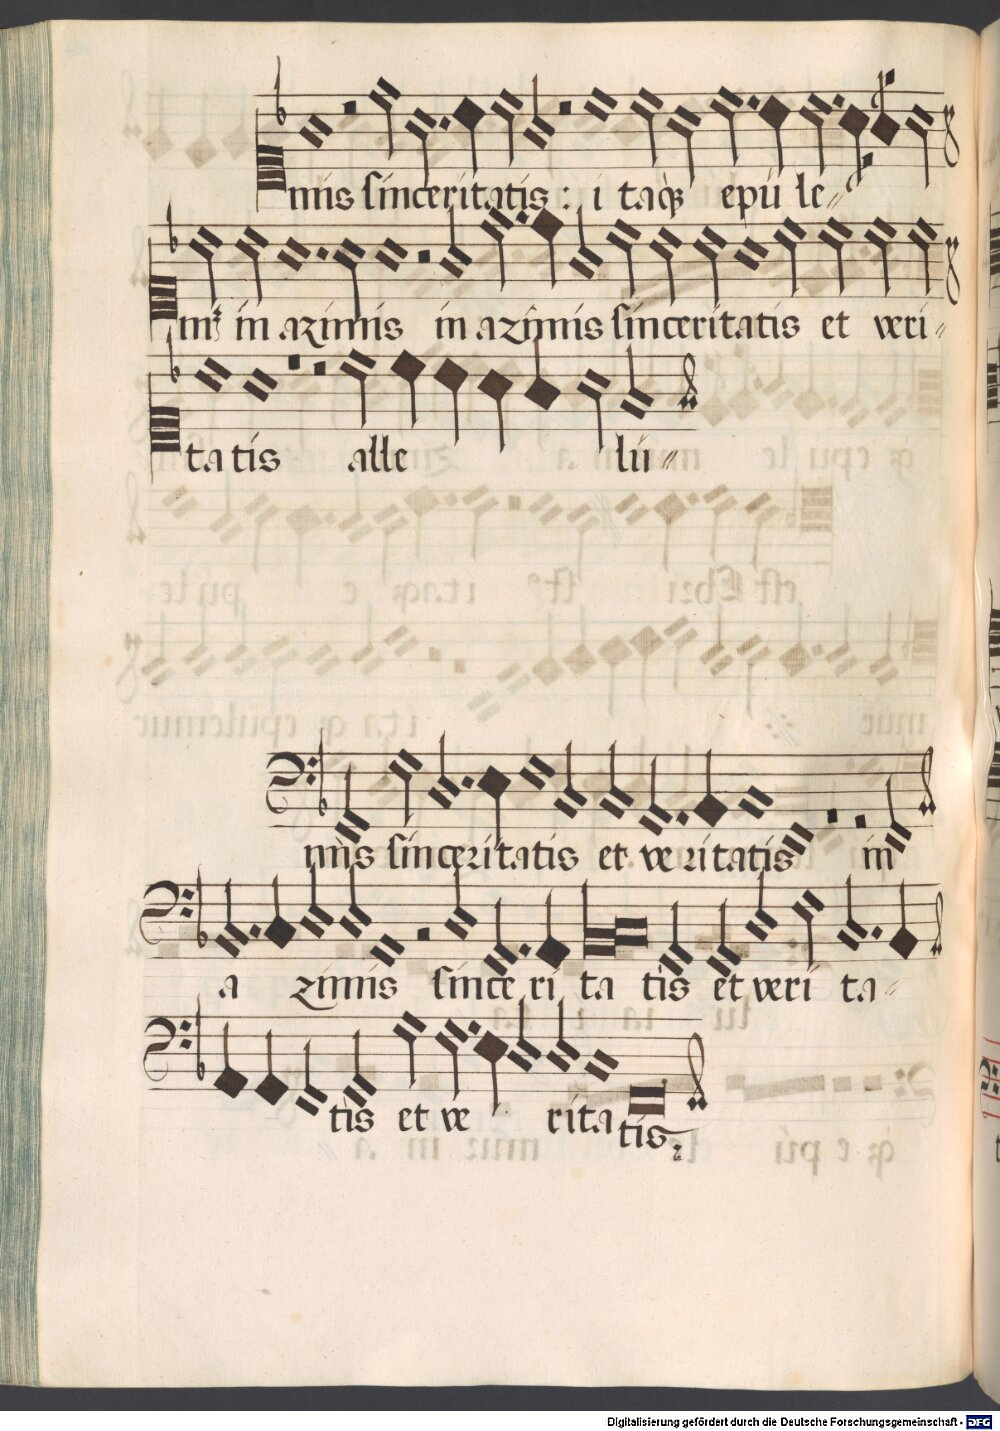 mis sinceritatis : i taqꝫ epu le〃
mꝰ in azimis in azimis sinceritatis et veri〃
ta tis alle lu〃
mis sinceritatis et ve ritatis in
a zimis since ri ta tis et veri ta〃
tis et ve rita tis
Digitalisierung gefördert durch die Deutsche Forschungsgemeinschaft - DFG